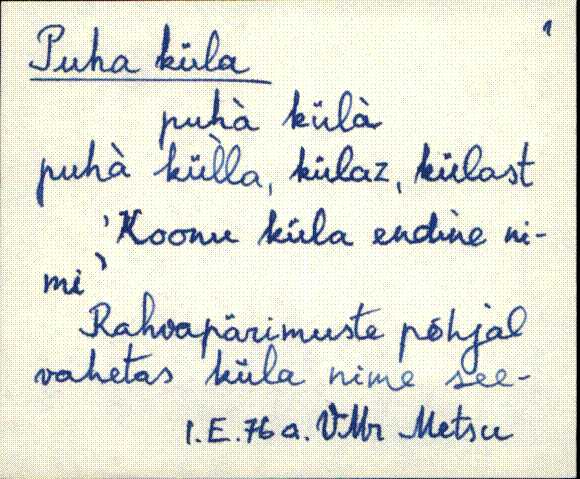 1
Puha küla
puhà külà
puhà kül̀la, külaz, külast
'Koonu küla endine ni-
mi'
Rahvapärimuste põhjal
vahetas küla nime see-
I.E. 76 a. VMr Metsu